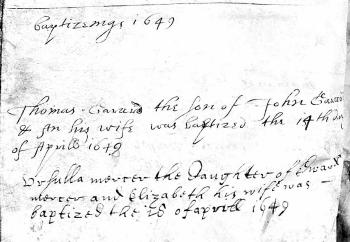 baptizemgs 1649
Thomas the son of John
& An his wife was baptized the 14th day
of Aprill 1649
Ursulla mercer the Daughter of Edward
mercer and Elizabeth his wife was
baptized the 28 of aprill 1649